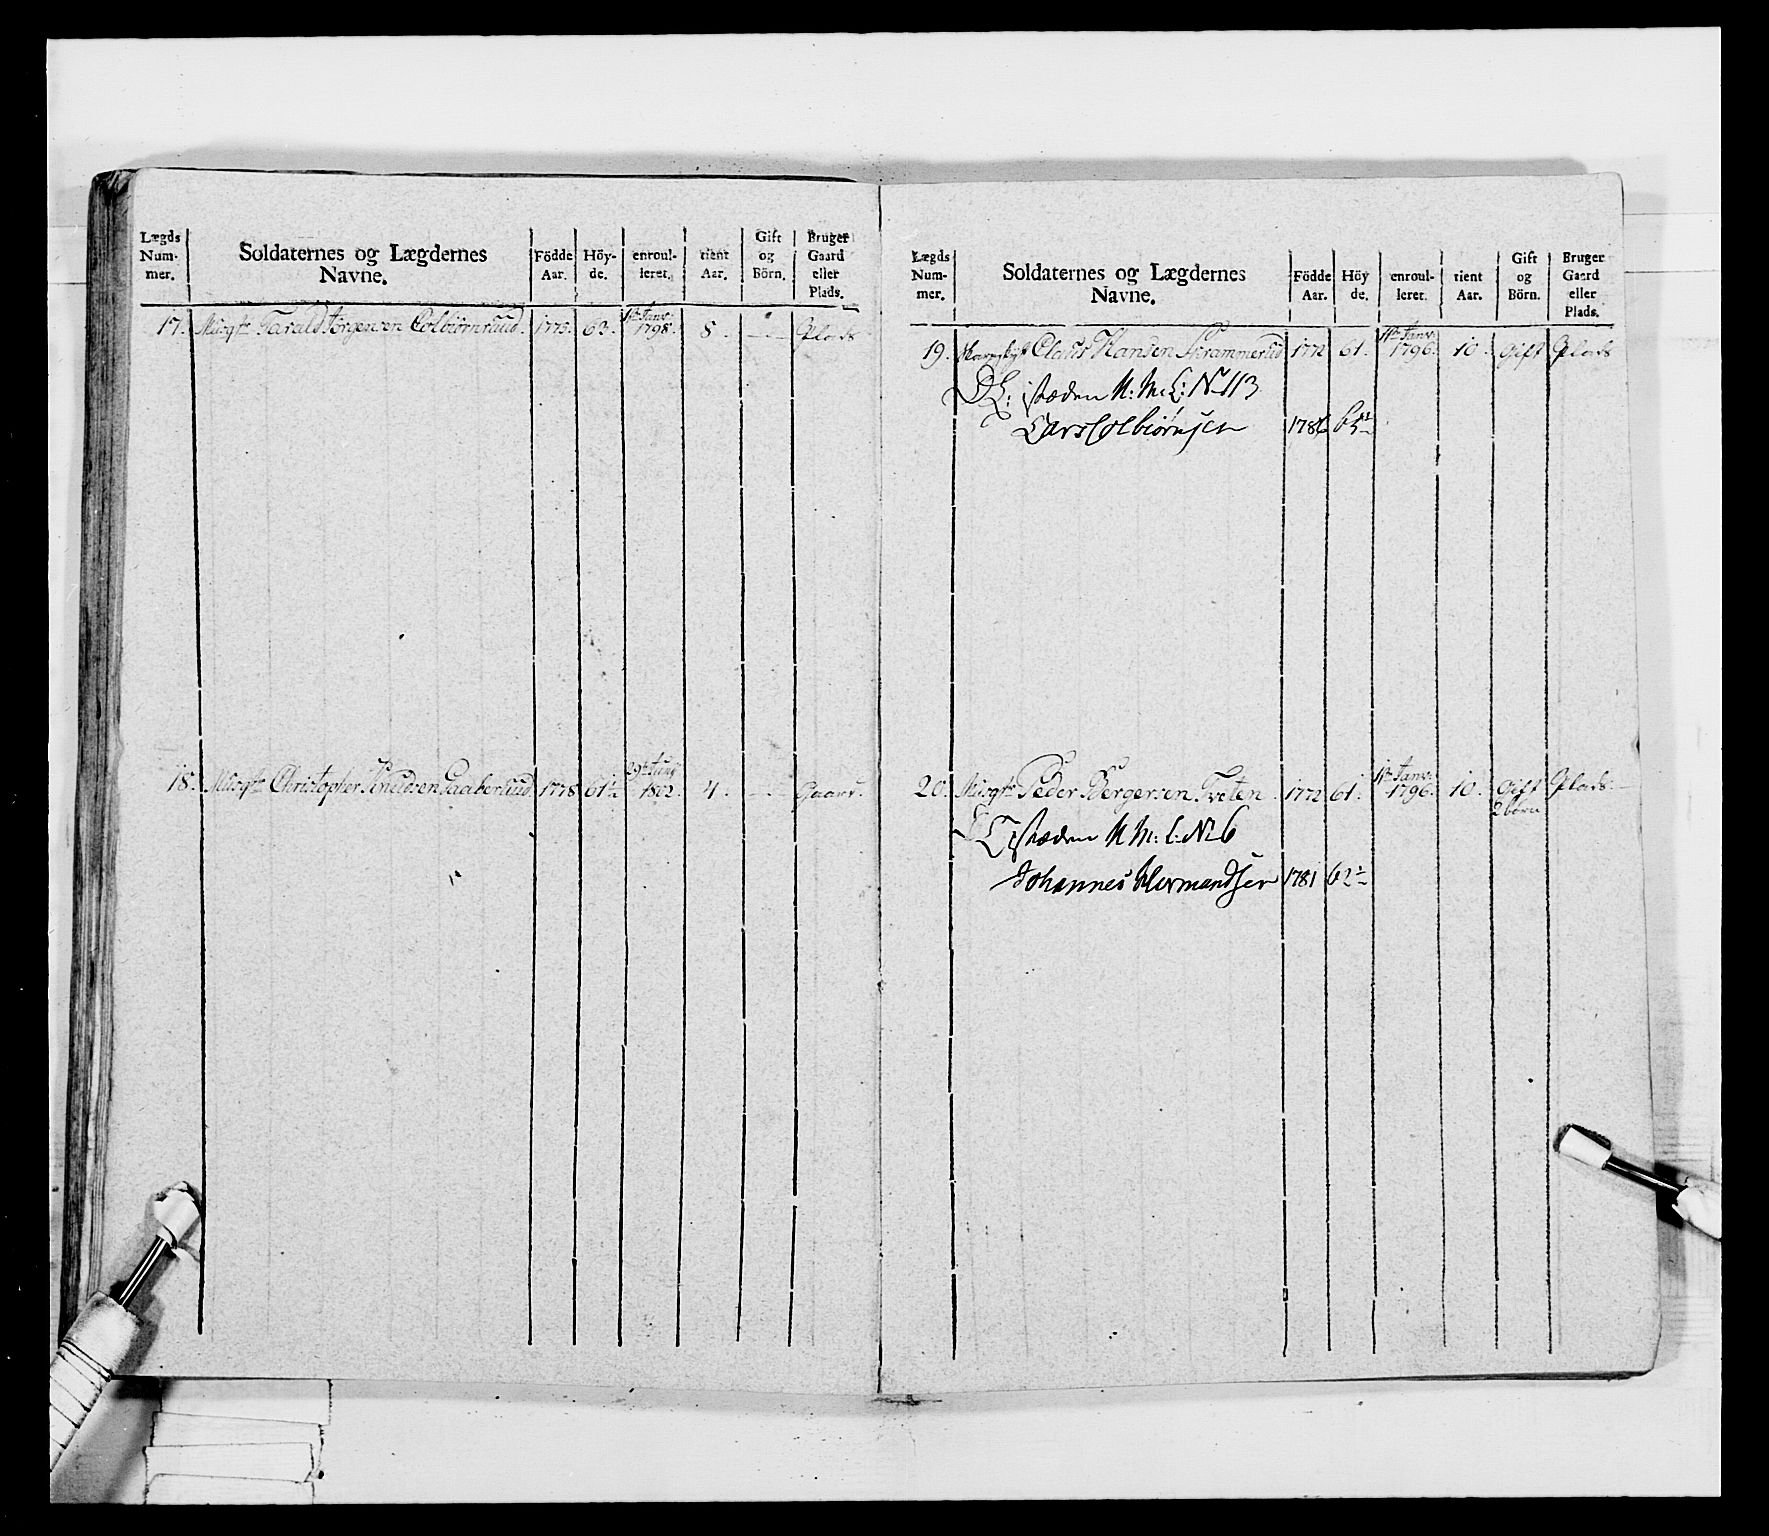 Lægds Num- mer. | Soldaternes og Lægdernes Navne. | Födde Aar. | Höy- de. | enroul- leret. | tient Aar. | Gift og Börn. | Bruger Gaard eller Plads.
17. Musqtr Tarald Jörgensen Colbiörnruud. 1775. 63. 1te Janv: 1798. 8. — Plads
18. Musqtr Christopher Knudsen Gaaberuud 1778 61½ 29de Juny 1802. 4. — Gaard.
Lægds Num- mer. | Soldaternes og Lægdernes Navne. | Födde Aar. | Höy de. | enroul- leret. | tient Aar. | Gift og Börn. | Bruger Gaard eller Plads.
19. Claus Hansen Skrammerud 1772 61. 1te Janv: 1796. 10. Gift Plads
istæden N: M: L: No 113
Lars Colbiörnsen 1786
20. Musqtr Peder Bergersen Tveten 1772 61. 1te Janv: 1796. 10. Gift 2 börn Plads.
istæden N M: L: No 6
Johannes Hermandsen 1781 62½